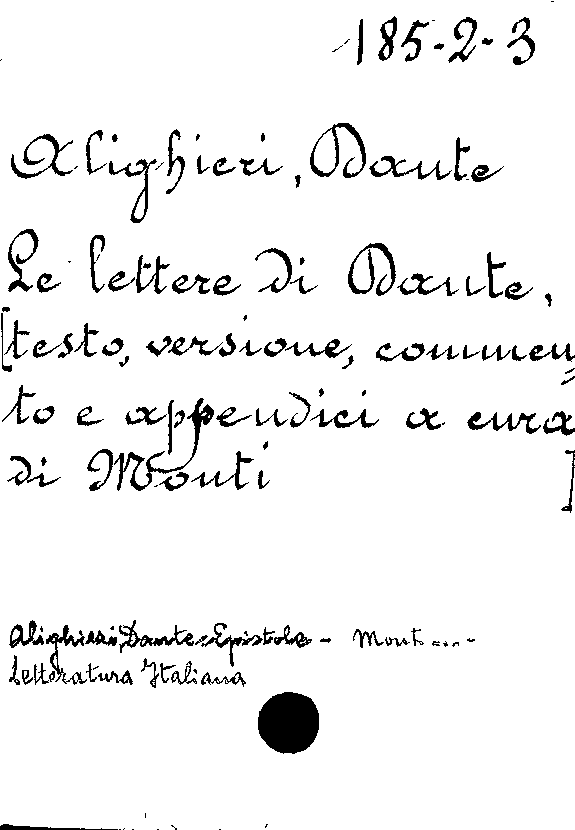 185-2-3
Alighieri, Dante
Le lettere di Dante,
[testo, versione, commen=
to e appendici a cura
di Monti ]
Alighieri, Dante = Epistole - Monti ... -
Letteratura Italiana